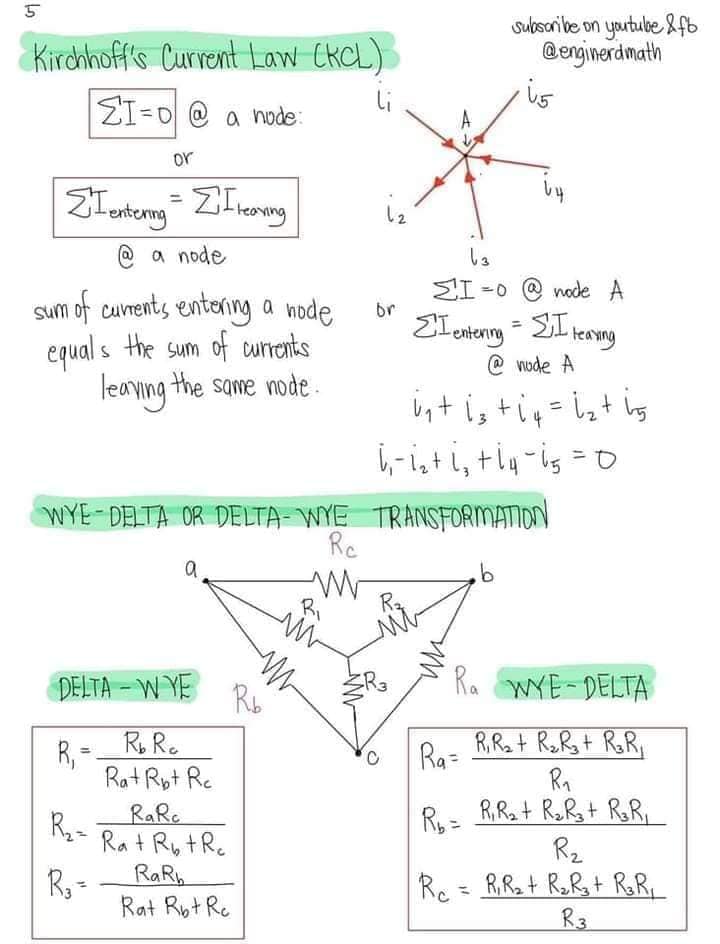 5
subscribe on youtube & fb
@enginerdmath
Kirchhoff's Current Law (KCL)
ΣI=0 @ a node:
or
ΣI entering = ΣI leaving
@ a node
sum of currents entering a node
equals the sum of currents
leaving the same node.
i₁
i₅
A
i₄
i₂
i₃
ΣI=0 @ node A
or ΣI entering = ΣI leaving
@ node A
i₁ + i₃ + i₄ = i₂ + i₅
i₁ - i₂ + i₃ + i₄ - i₅ = 0
WYE-DELTA OR DELTA-WYE TRANSFORMATION
Rc
a
b
R₁
R₂
Rb
R₃
Ra
c
DELTA - WYE
R₁ = Rb Rc / Ra + Rb + Rc
R₂ = Ra Rc / Ra + Rb + Rc
R₃ = Ra Rb / Ra + Rb + Rc
WYE-DELTA
Ra = R₁R₂ + R₂R₃ + R₃R₁ / R₁
Rb = R₁R₂ + R₂R₃ + R₃R₁ / R₂
Rc = R₁R₂ + R₂R₃ + R₃R₁ / R₃